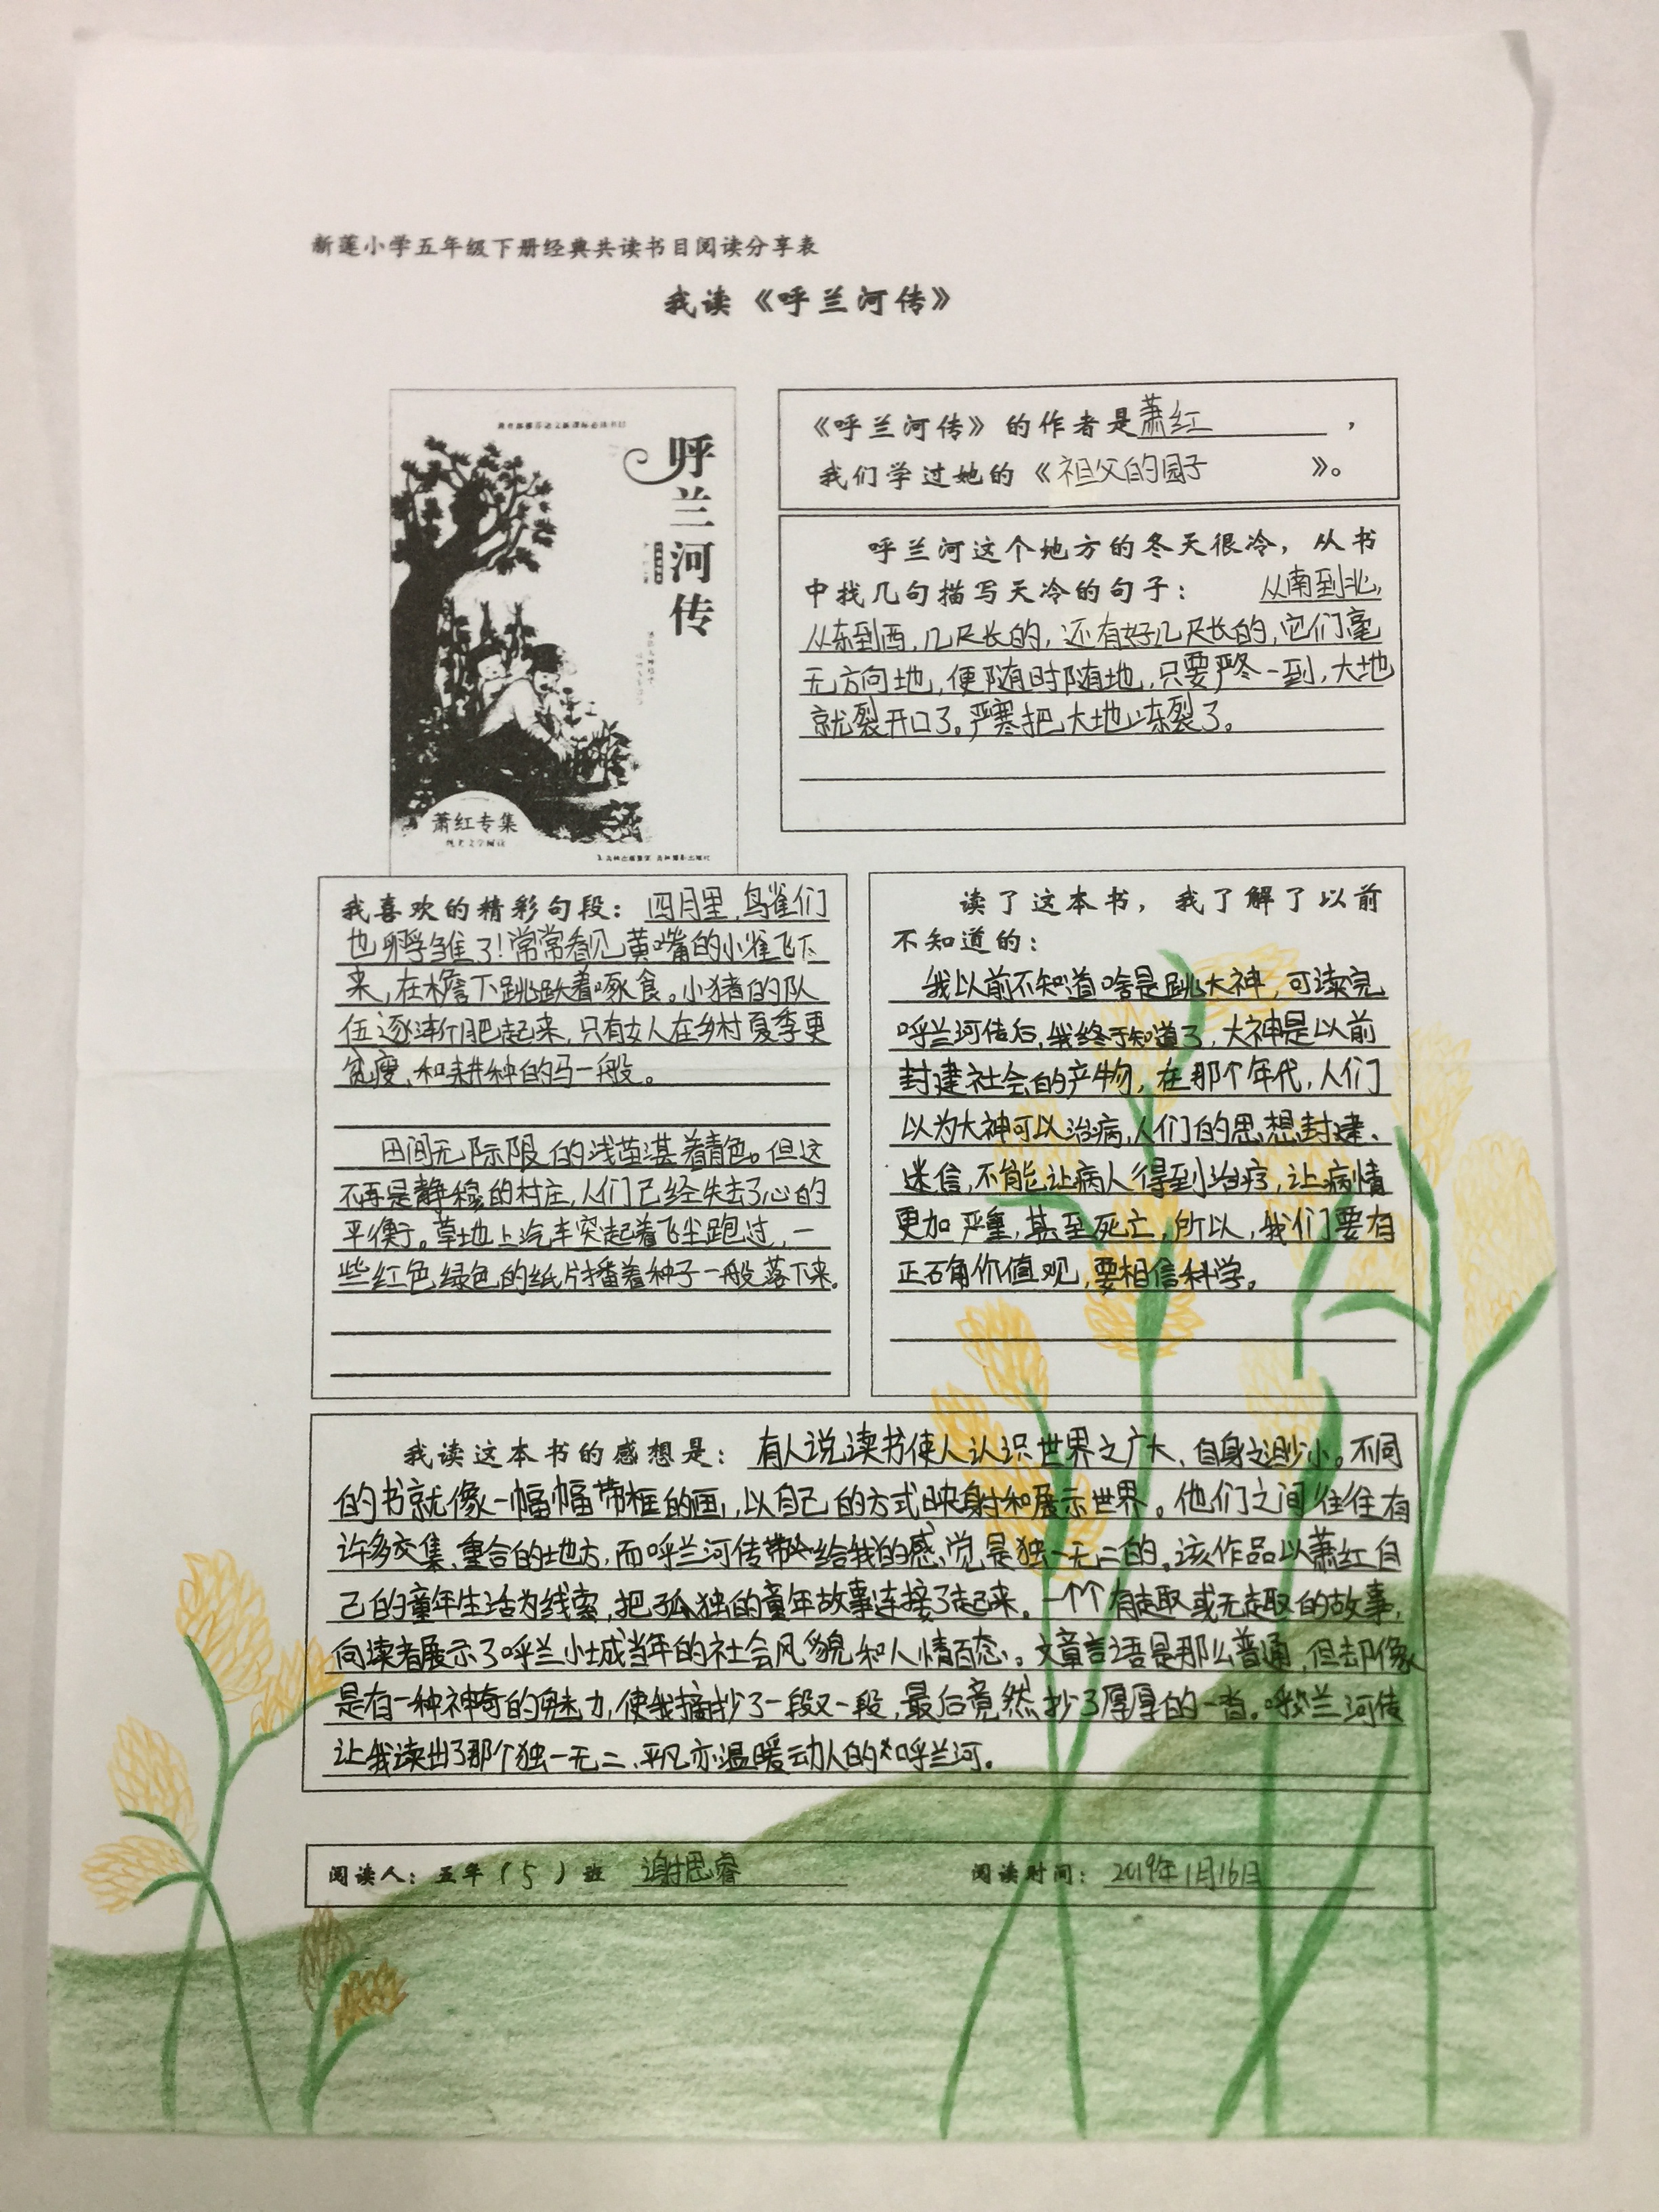 新莲小学五年级下册经典共读书目阅读分享表
我读《呼兰河传》
呼兰河传
萧红专集
《呼兰河传》的作者是萧红，
我们学过她的《祖父的园子》。
呼兰河这个地方的冬天很冷，从书
中找几句描写天冷的句子：从南到北,
从东到西,几尺长的,还有好几尺长的,它们毫
无方向地,便随时随地,只要严冬一到,大地
就裂开口了。严寒把大地冻裂了。
我喜欢的精彩句段：四月里,鸟雀们
也孵雏了!常常看见黄嘴的小雀飞下
来,在檐下跳跃着啄食。小猪的队
伍逐渐肥起来,只有女人在乡村夏季更
贫瘦,和耕种的马一般。
田间无际限的浅苗湛着青色。但这
不再是静穆的村庄,人们已经失去了心的
平衡。草地上汽车突起着飞尘跑过,一
些红色绿色的纸片播着种子一般落下来。
读了这本书，我了解了以前
不知道的：
我以前不知道啥是跳大神,可读完
呼兰河传后,我终于知道了,大神是以前
封建社会的产物,在那个年代,人们
以为大神可以治病,人们的思想封建、
迷信,不能让病人得到治疗,让病情
更加严重,甚至死亡,所以,我们要有
正确价值观,要相信科学。
我读这本书的感想是：有人说读书使人认识世界之广大、自身之渺小。不同
的书就像一幅幅带框的画,以自己的方式映射和展示世界。他们之间往往有
许多交集、重合的地方,而呼兰河传带给我的感觉是独一无二的。该作品以萧红自
己的童年生活为线索,把孤独的童年故事连接了起来。一个个有趣或无趣的故事,
向读者展示了呼兰小城当年的社会风貌和人情百态。文章言语是那么普通,但却像
是有一种神奇的魅力,使我摘抄了一段又一段,最后竟然抄了厚厚的一沓。呼兰河传
让我读出了那个独一无二、平凡亦温暖动人的呼兰河。
阅读人：五年(5)班 谢思睿 阅读时间：2019年1月16日